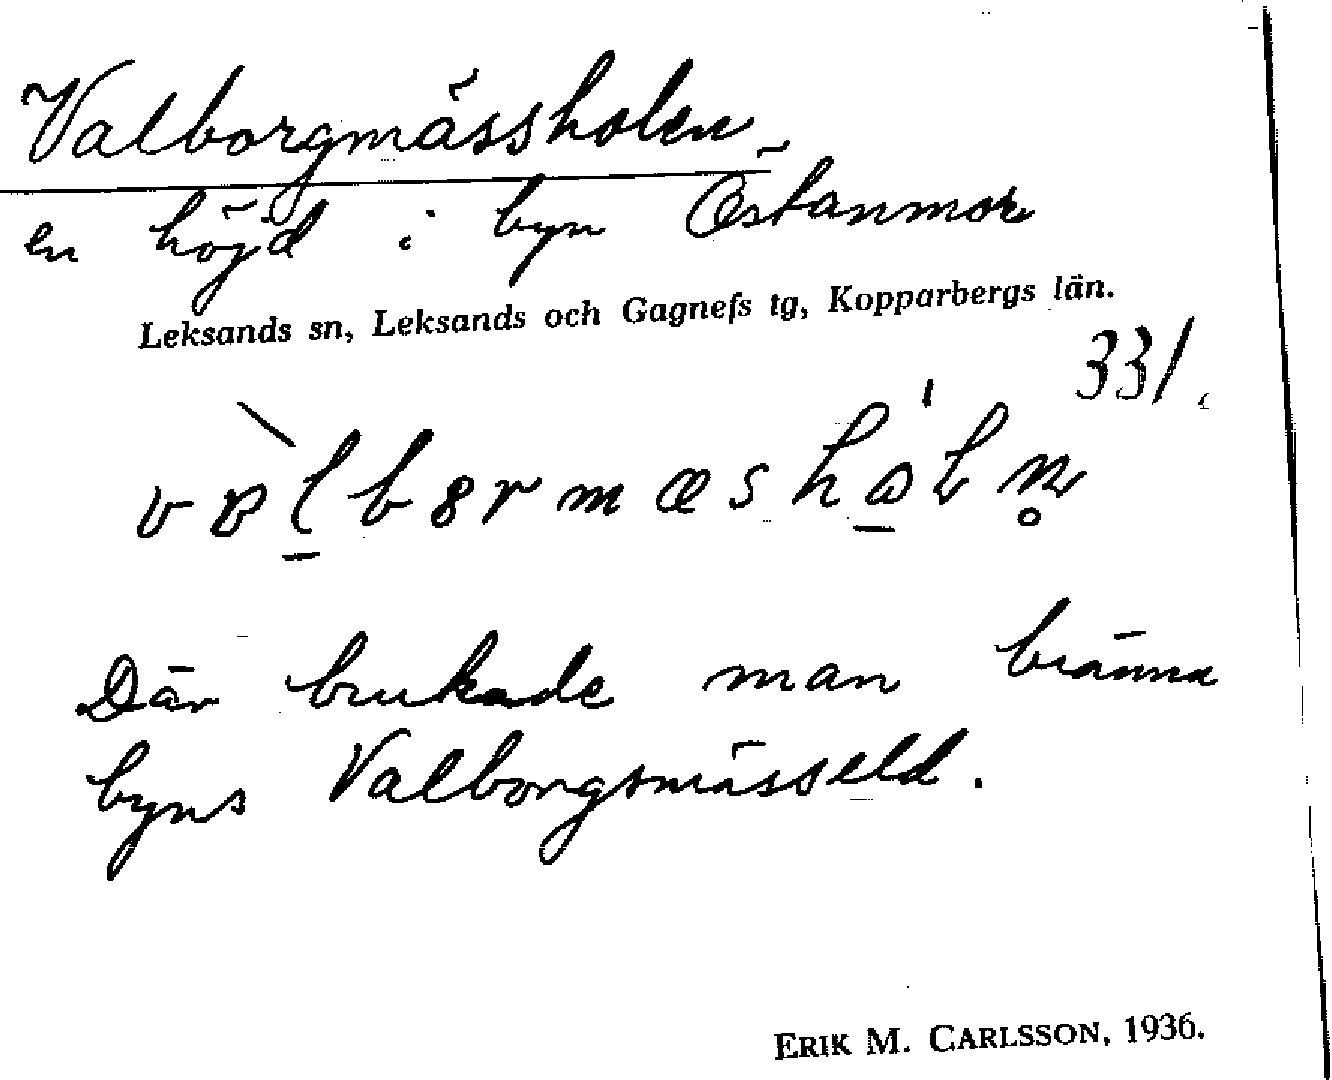 Valborgmässholen
en höjd i byn Östanmor
Leksands sn, Leksands och Gagnefs tg, Kopparbergs län.
331.
Där brukade man bränna
byns Valborgsmässeld.
ERIK M. CARLSSON, 1936.